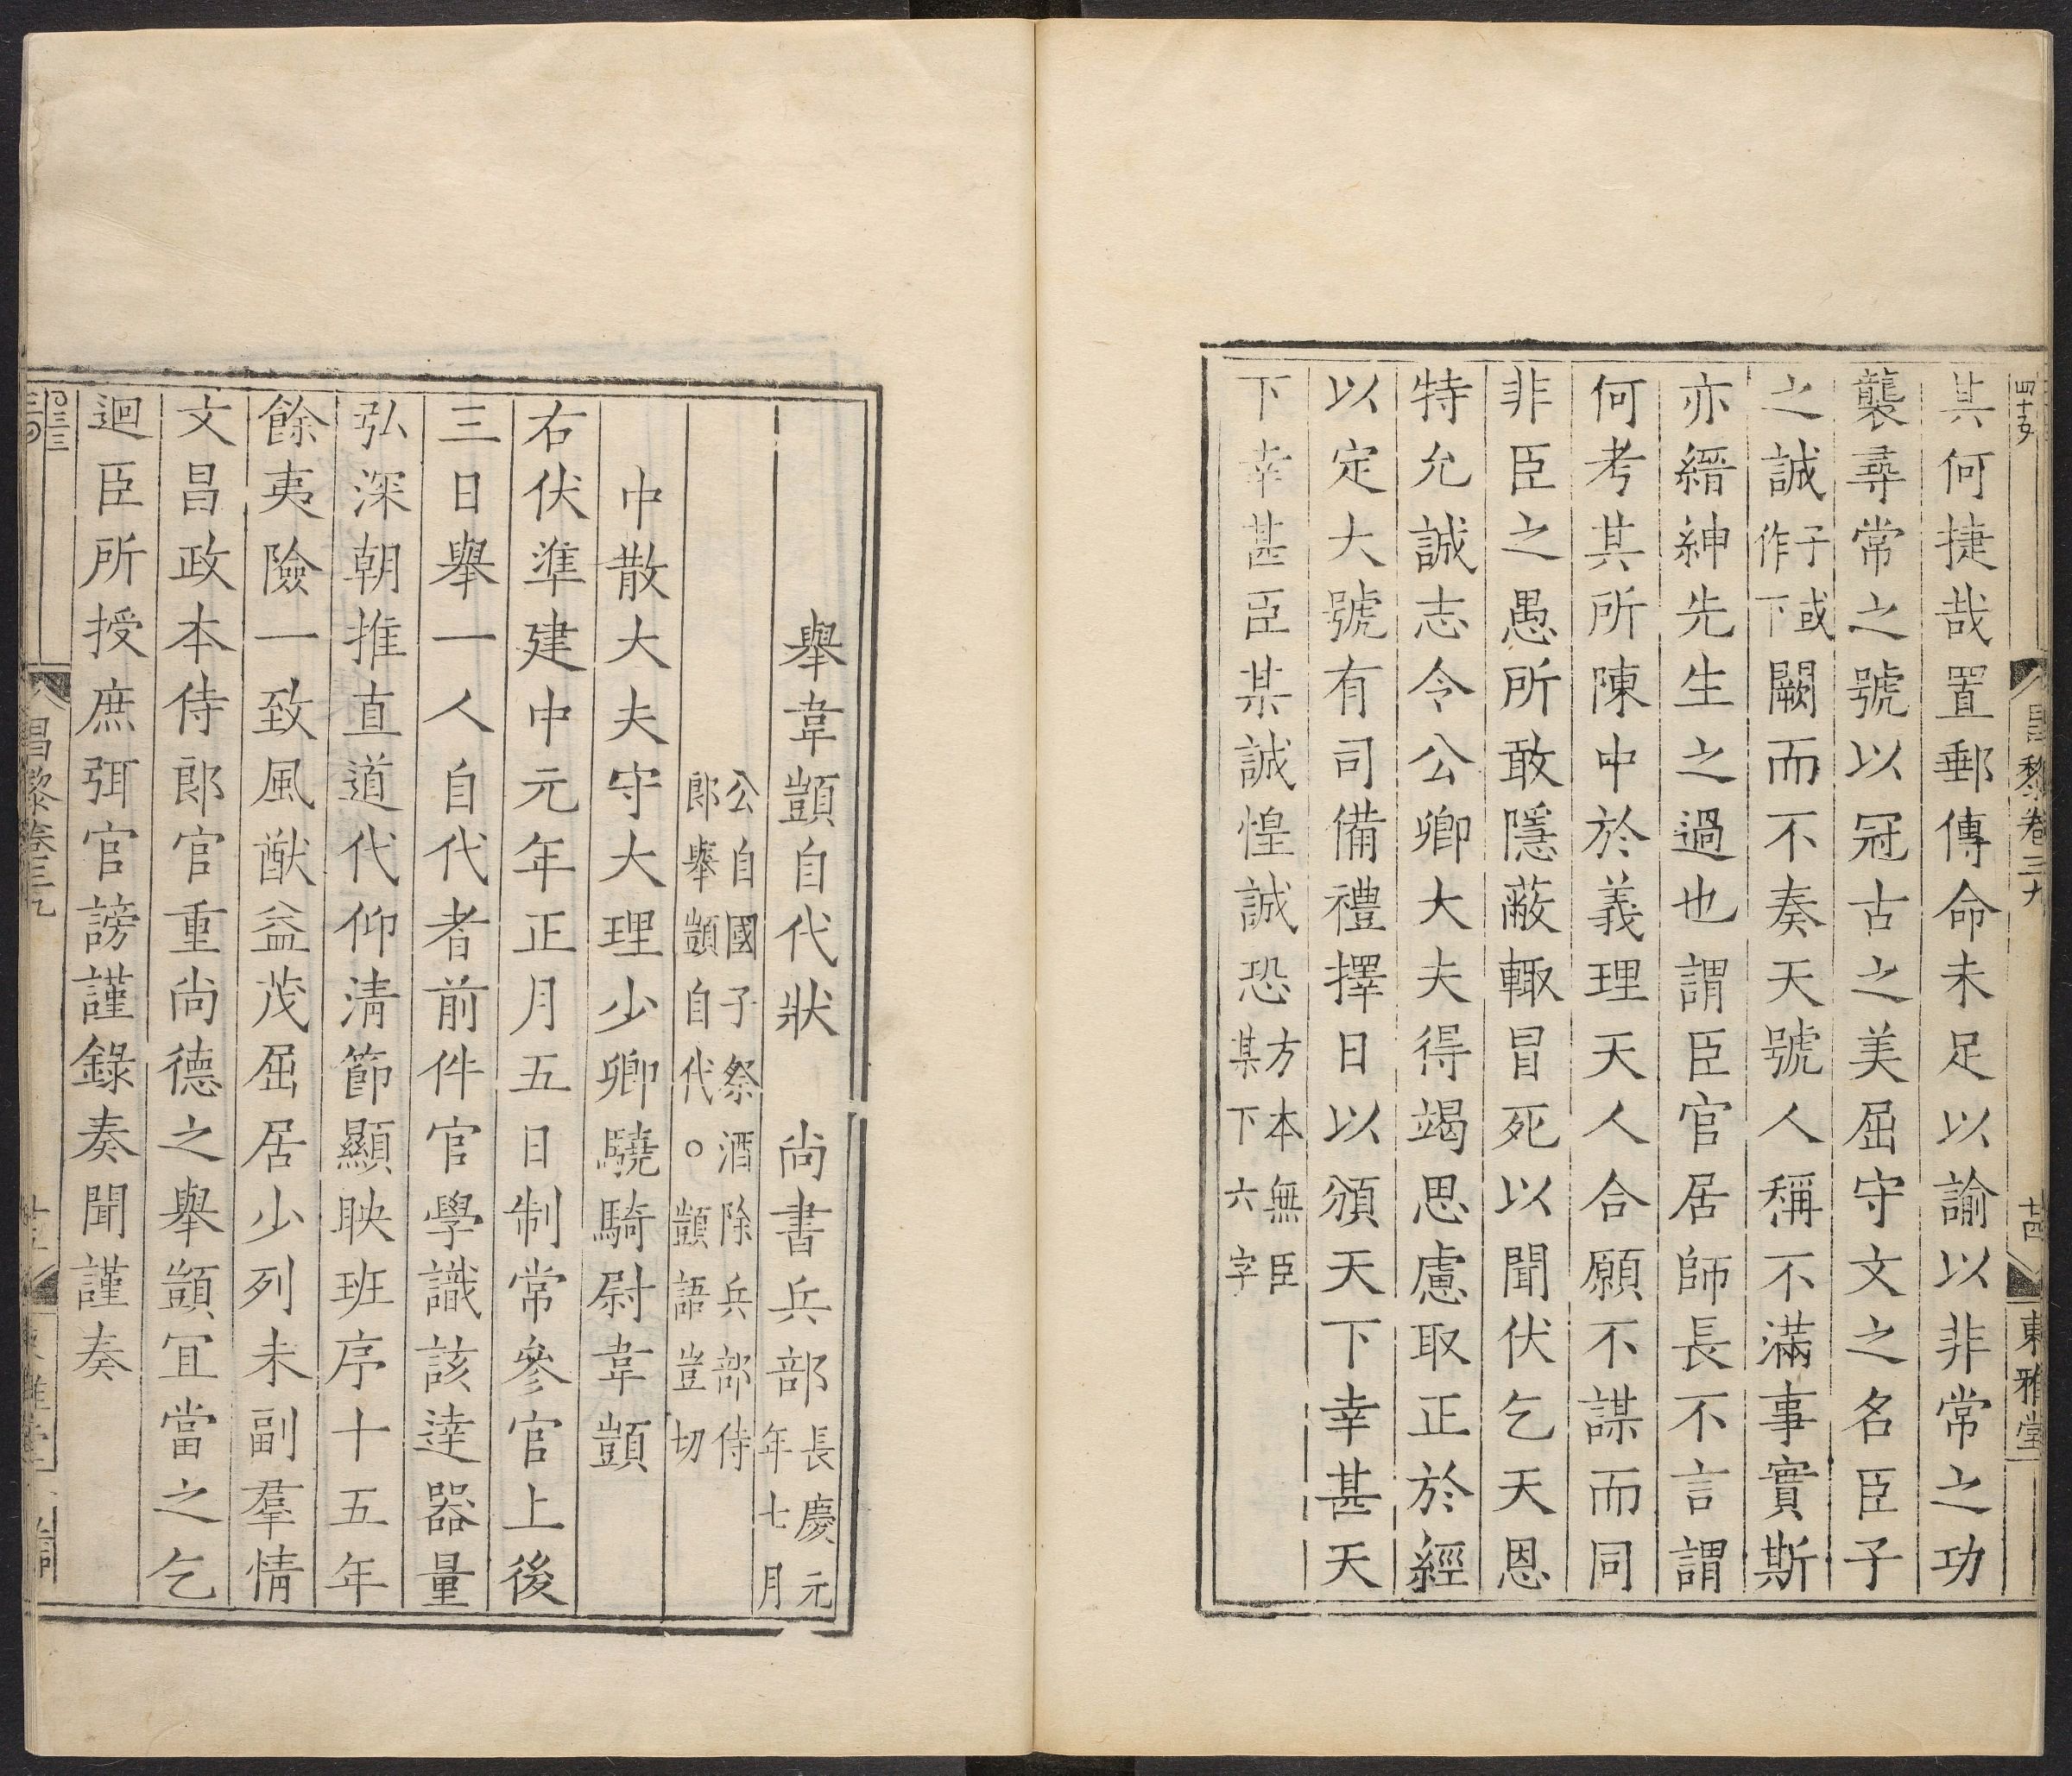 昌黎卷三九
東雅堂
其何捷哉置郵傳命未足以諭以非常之功
襲尋常之號以冠古之美屈守文之名臣子
之誠子或作下闕而不奏天號人稱不滿事實斯
亦縉紳先生之過也謂臣官居師長不言謂
何考其所陳中於義理天人合願不謀而同
非臣之愚所敢隱蔽輒冒死以聞伏乞天恩
特允誠志令公卿大夫得竭思慮取正於經
以定大號有司備禮擇日以頒天下幸甚天
下幸甚臣某誠惶誠恐方本無臣某下六字
舉韋顗自代狀 尚書兵部長慶元年七月
公自國子祭酒除兵部侍
郎舉顗自代○顗語豈切
中散大夫守大理少卿驍騎尉韋顗
右伏準建中元年正月五日制常參官上後
三日舉一人自代者前件官學識該達器量
弘深朝推直道代仰清節顯映班序十五年
餘夷險一致風猷益茂屈居少列未副羣情
文昌政本侍郎官重尚德之舉顗宜當之乞
迴臣所授庶弭官謗謹錄奏聞謹奏
昌黎卷三九